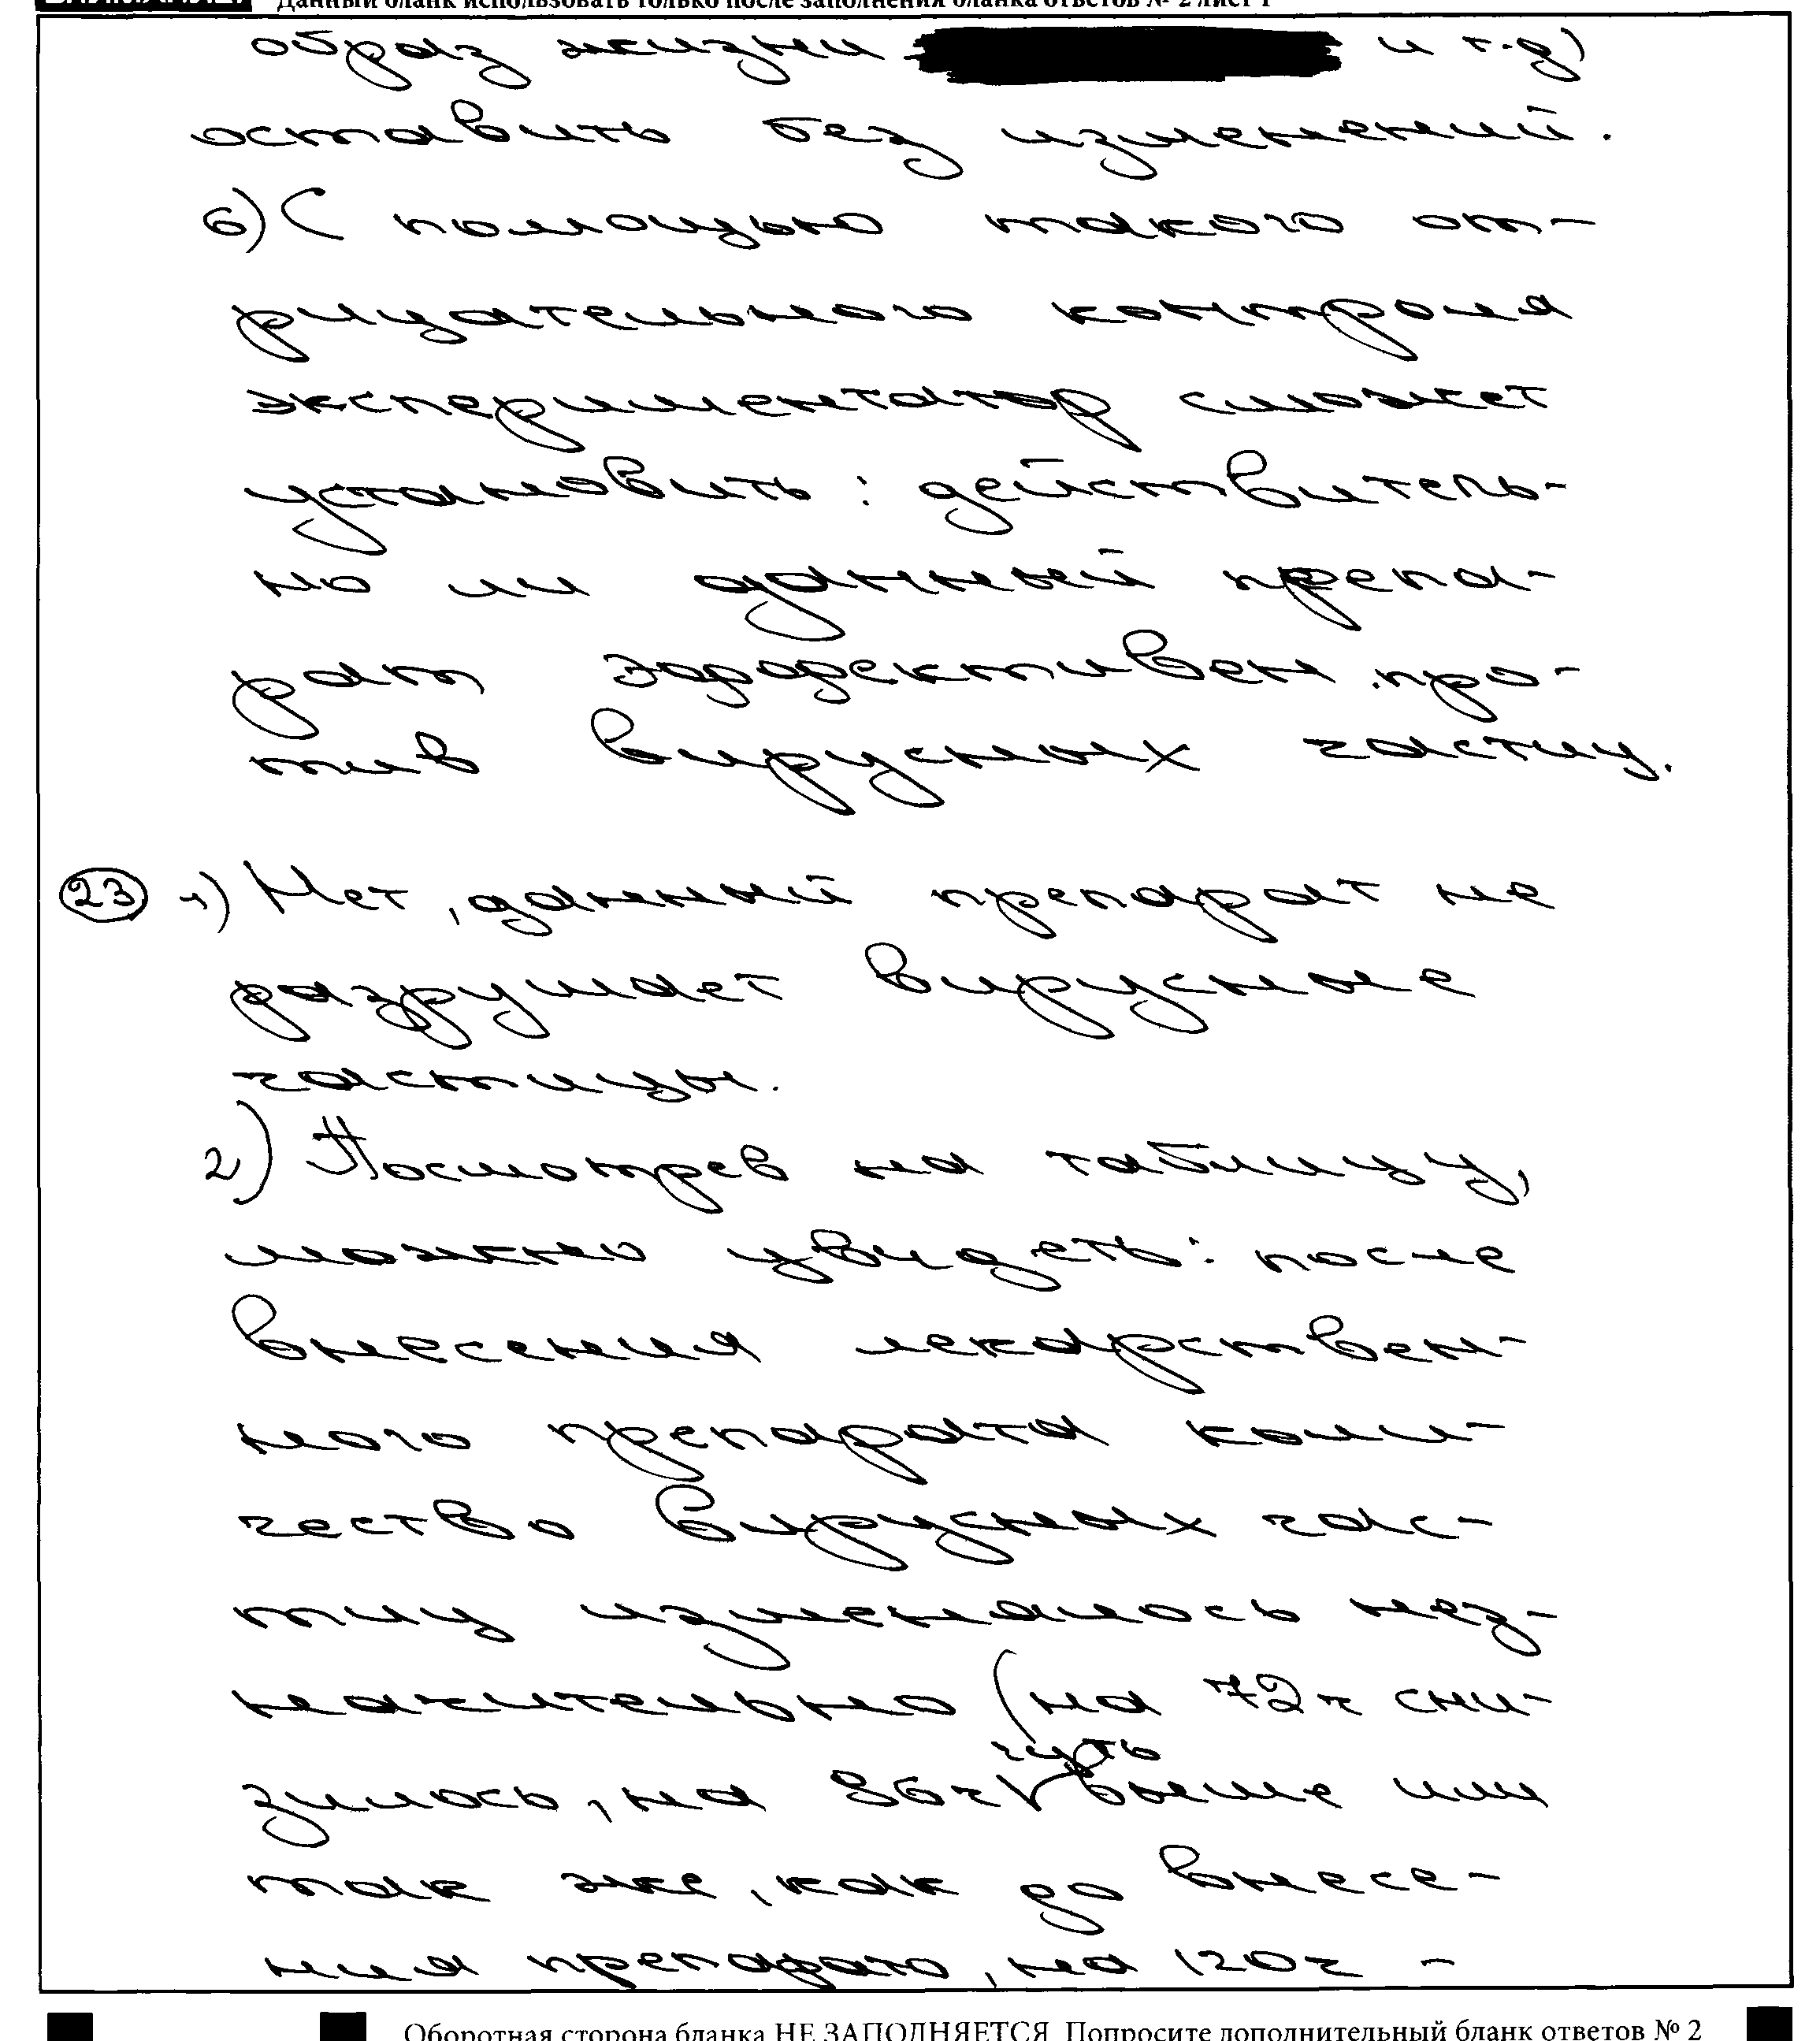 Данный бланк использовать только после заполнения бланка ответов № 2 лист 1
образ жизни и т.д)
оставить без изменений.
6) С помощью такого от-
рицательного контроля
экспериментатор сможет
установить: действитель-
но ли данный препа-
рат эффективен про-
тив вирусных частиц.
23 1) Нет, данный препарат не
разрушает вирусные
частицы.
2) Посмотрев на таблицу,
можно увидеть: после
внесения лекарствен-
ного препарата коли-
чество вирусных час-
тиц изменялось нез-
начительно (на 72ч сни-
чуть
зилось, на 96ч выше или
так же, как до внесе-
ния препарата, на 120ч -
Оборотная сторона бланка НЕ ЗАПОЛНЯЕТСЯ. Попросите дополнительный бланк ответов № 2